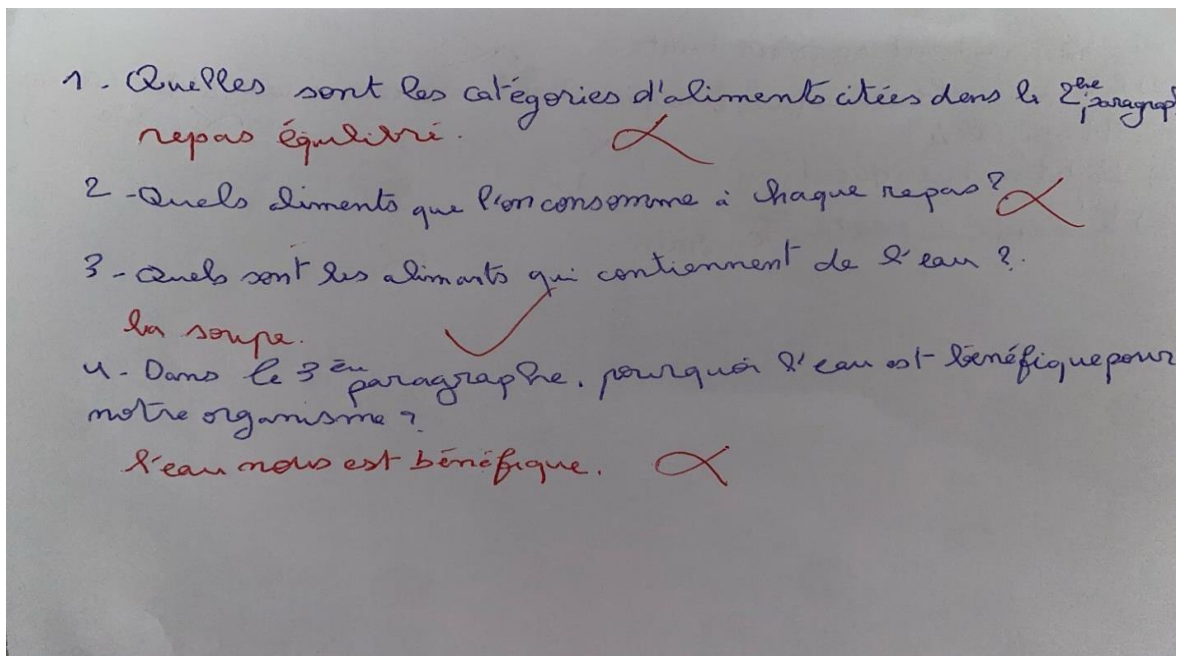 1. Quelles sont les catégories d'aliments citées dans le 2ème paragraph
repas équilibré.
2 - Quels aliments que l'on consomme à chaque repas ?
3 - Quels sont les alimants qui contiennent de l'eau ?.
la soupe.
4. Dans le 3ème paragraphe, pourquoi l'eau est bénéfique pour
notre organisme ?
l'eau nous est bénéfique.